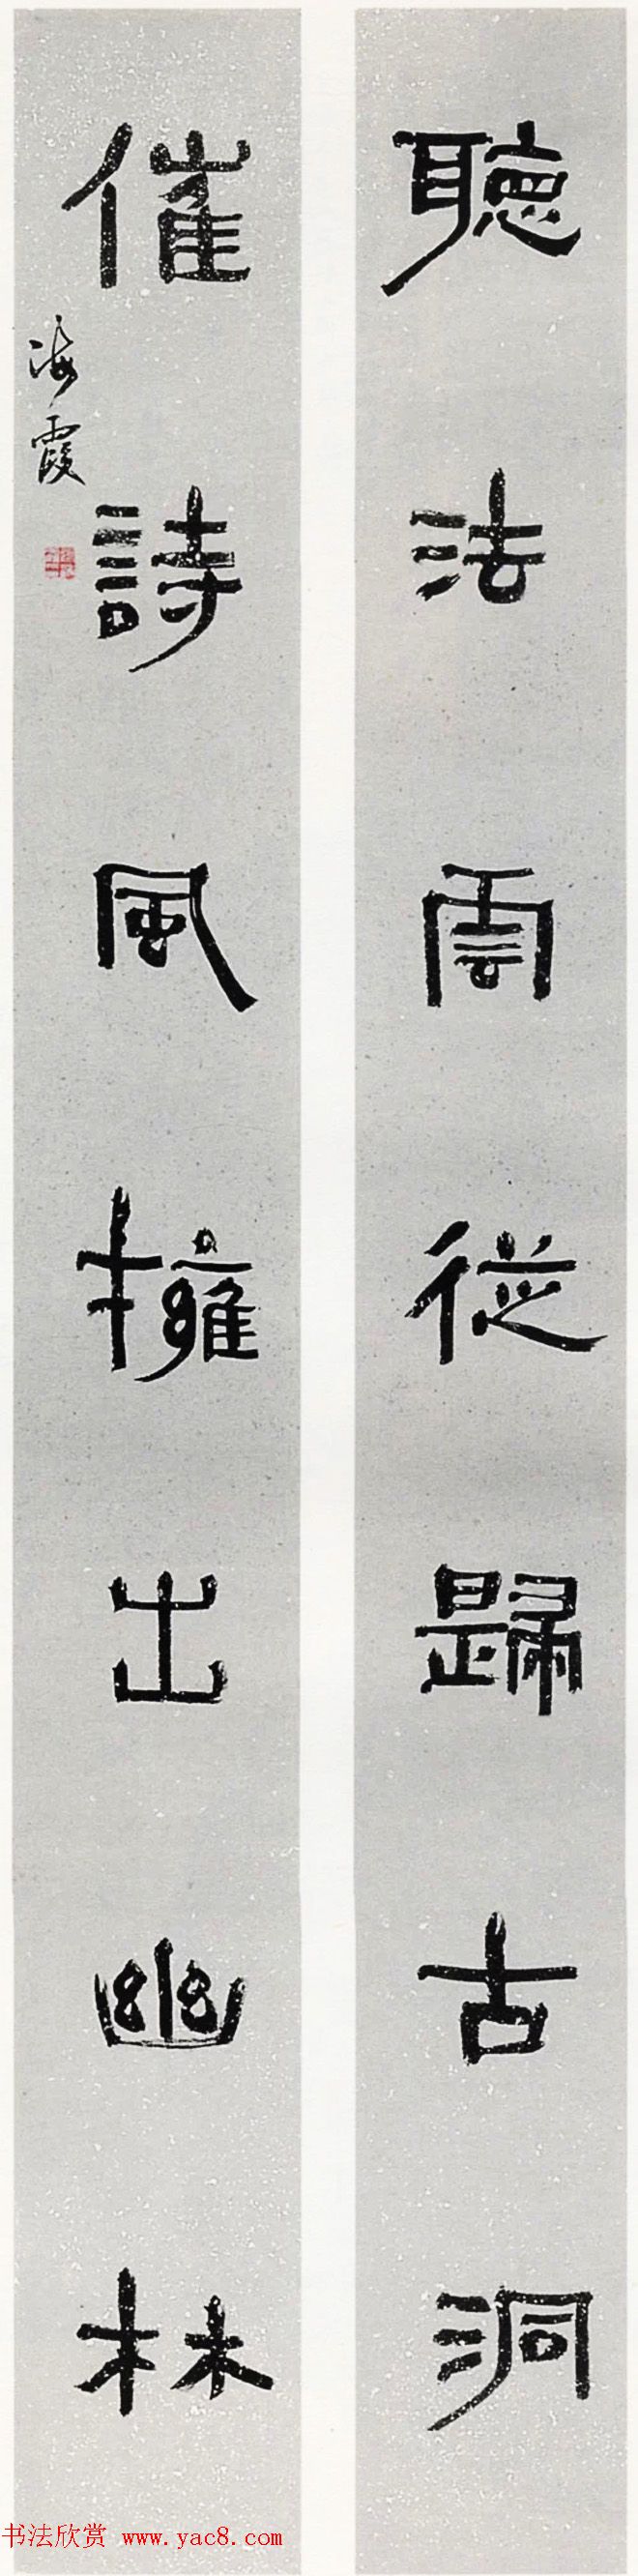 聽法雲從歸古洞
催詩風擁出幽林
海霞
书法欣赏 www.yac8.com